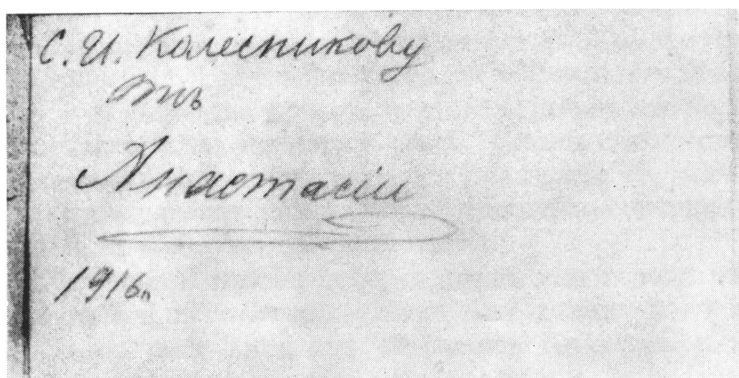 С. И. Колесникову
отъ
Анастасіи
1916 г.